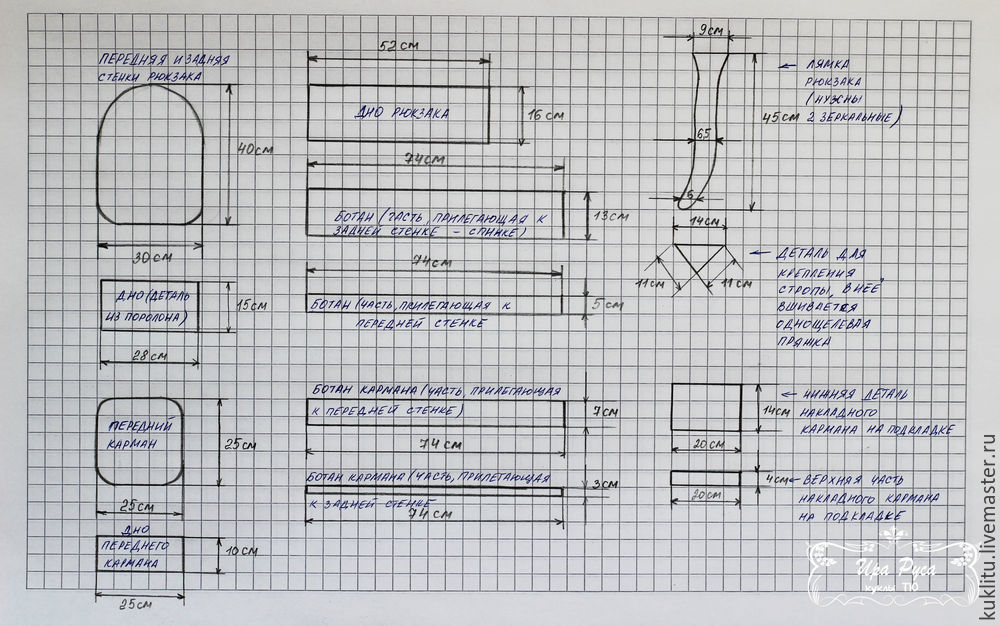 ПЕРЕДНЯЯ И ЗАДНЯЯ
СТЕНКИ РЮКЗАКА
40см
30см
52см
ДНО РЮКЗАКА
16см
74см
БОТАН (ЧАСТЬ, ПРИЛЕГАЮЩАЯ К
ЗАДНЕЙ СТЕНКЕ – СПИНКЕ)
13см
9см
6,5
5
45см
ЛЯМКА
РЮКЗАКА
(НУЖНЫ
2 ЗЕРКАЛЬНЫЕ)
14см
11см
11см
ДЕТАЛЬ ДЛЯ
КРЕПЛЕНИЯ
СТРОПЫ, В НЕЁ
ВШИВАЕТСЯ
ОДНОЩЕЛЕВАЯ
ПРЯЖКА
ДНО (ДЕТАЛЬ
ИЗ ПОРОЛОНА)
15см
28см
74см
БОТАН (ЧАСТЬ, ПРИЛЕГАЮЩАЯ К
ПЕРЕДНЕЙ СТЕНКЕ
5см
ПЕРЕДНИЙ
КАРМАН
25см
25см
БОТАН КАРМАНА (ЧАСТЬ, ПРИЛЕГАЮЩАЯ
К ПЕРЕДНЕЙ СТЕНКЕ)
7см
74см
БОТАН КАРМАНА (ЧАСТЬ, ПРИЛЕГАЮЩАЯ
К ЗАДНЕЙ СТЕНКЕ
3см
74см
14см
20см
НИЖНЯЯ ДЕТАЛЬ
НАКЛАДНОГО
КАРМАНА НА ПОДКЛАДКЕ
4см
20см
ВЕРХНЯЯ ЧАСТЬ
НАКЛАДНОГО КАРМАНА
НА ПОДКЛАДКЕ
ДНО
ПЕРЕДНЕГО
КАРМАНА
10см
25см
Ира Руса
куклы ТЮ
kuklitu.livemaster.ru